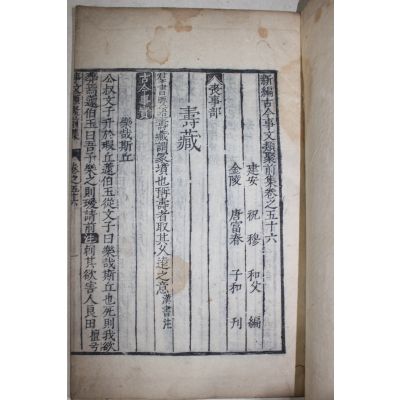 新編古今事文類聚前集卷之五十六
建安 祝穆 和父 編
金陵 唐富春 子和 刋
喪事部
壽藏
壽藏謂冢壙也稱壽者取其久遠之意漢書注
古今事實
樂哉斯丘
公叔文子升於瑕丘蘧伯玉從文子曰樂哉斯丘也死則我欲
葬焉蘧伯玉曰吾子樂之則瑗請前註刺其欲害人良田檀弓